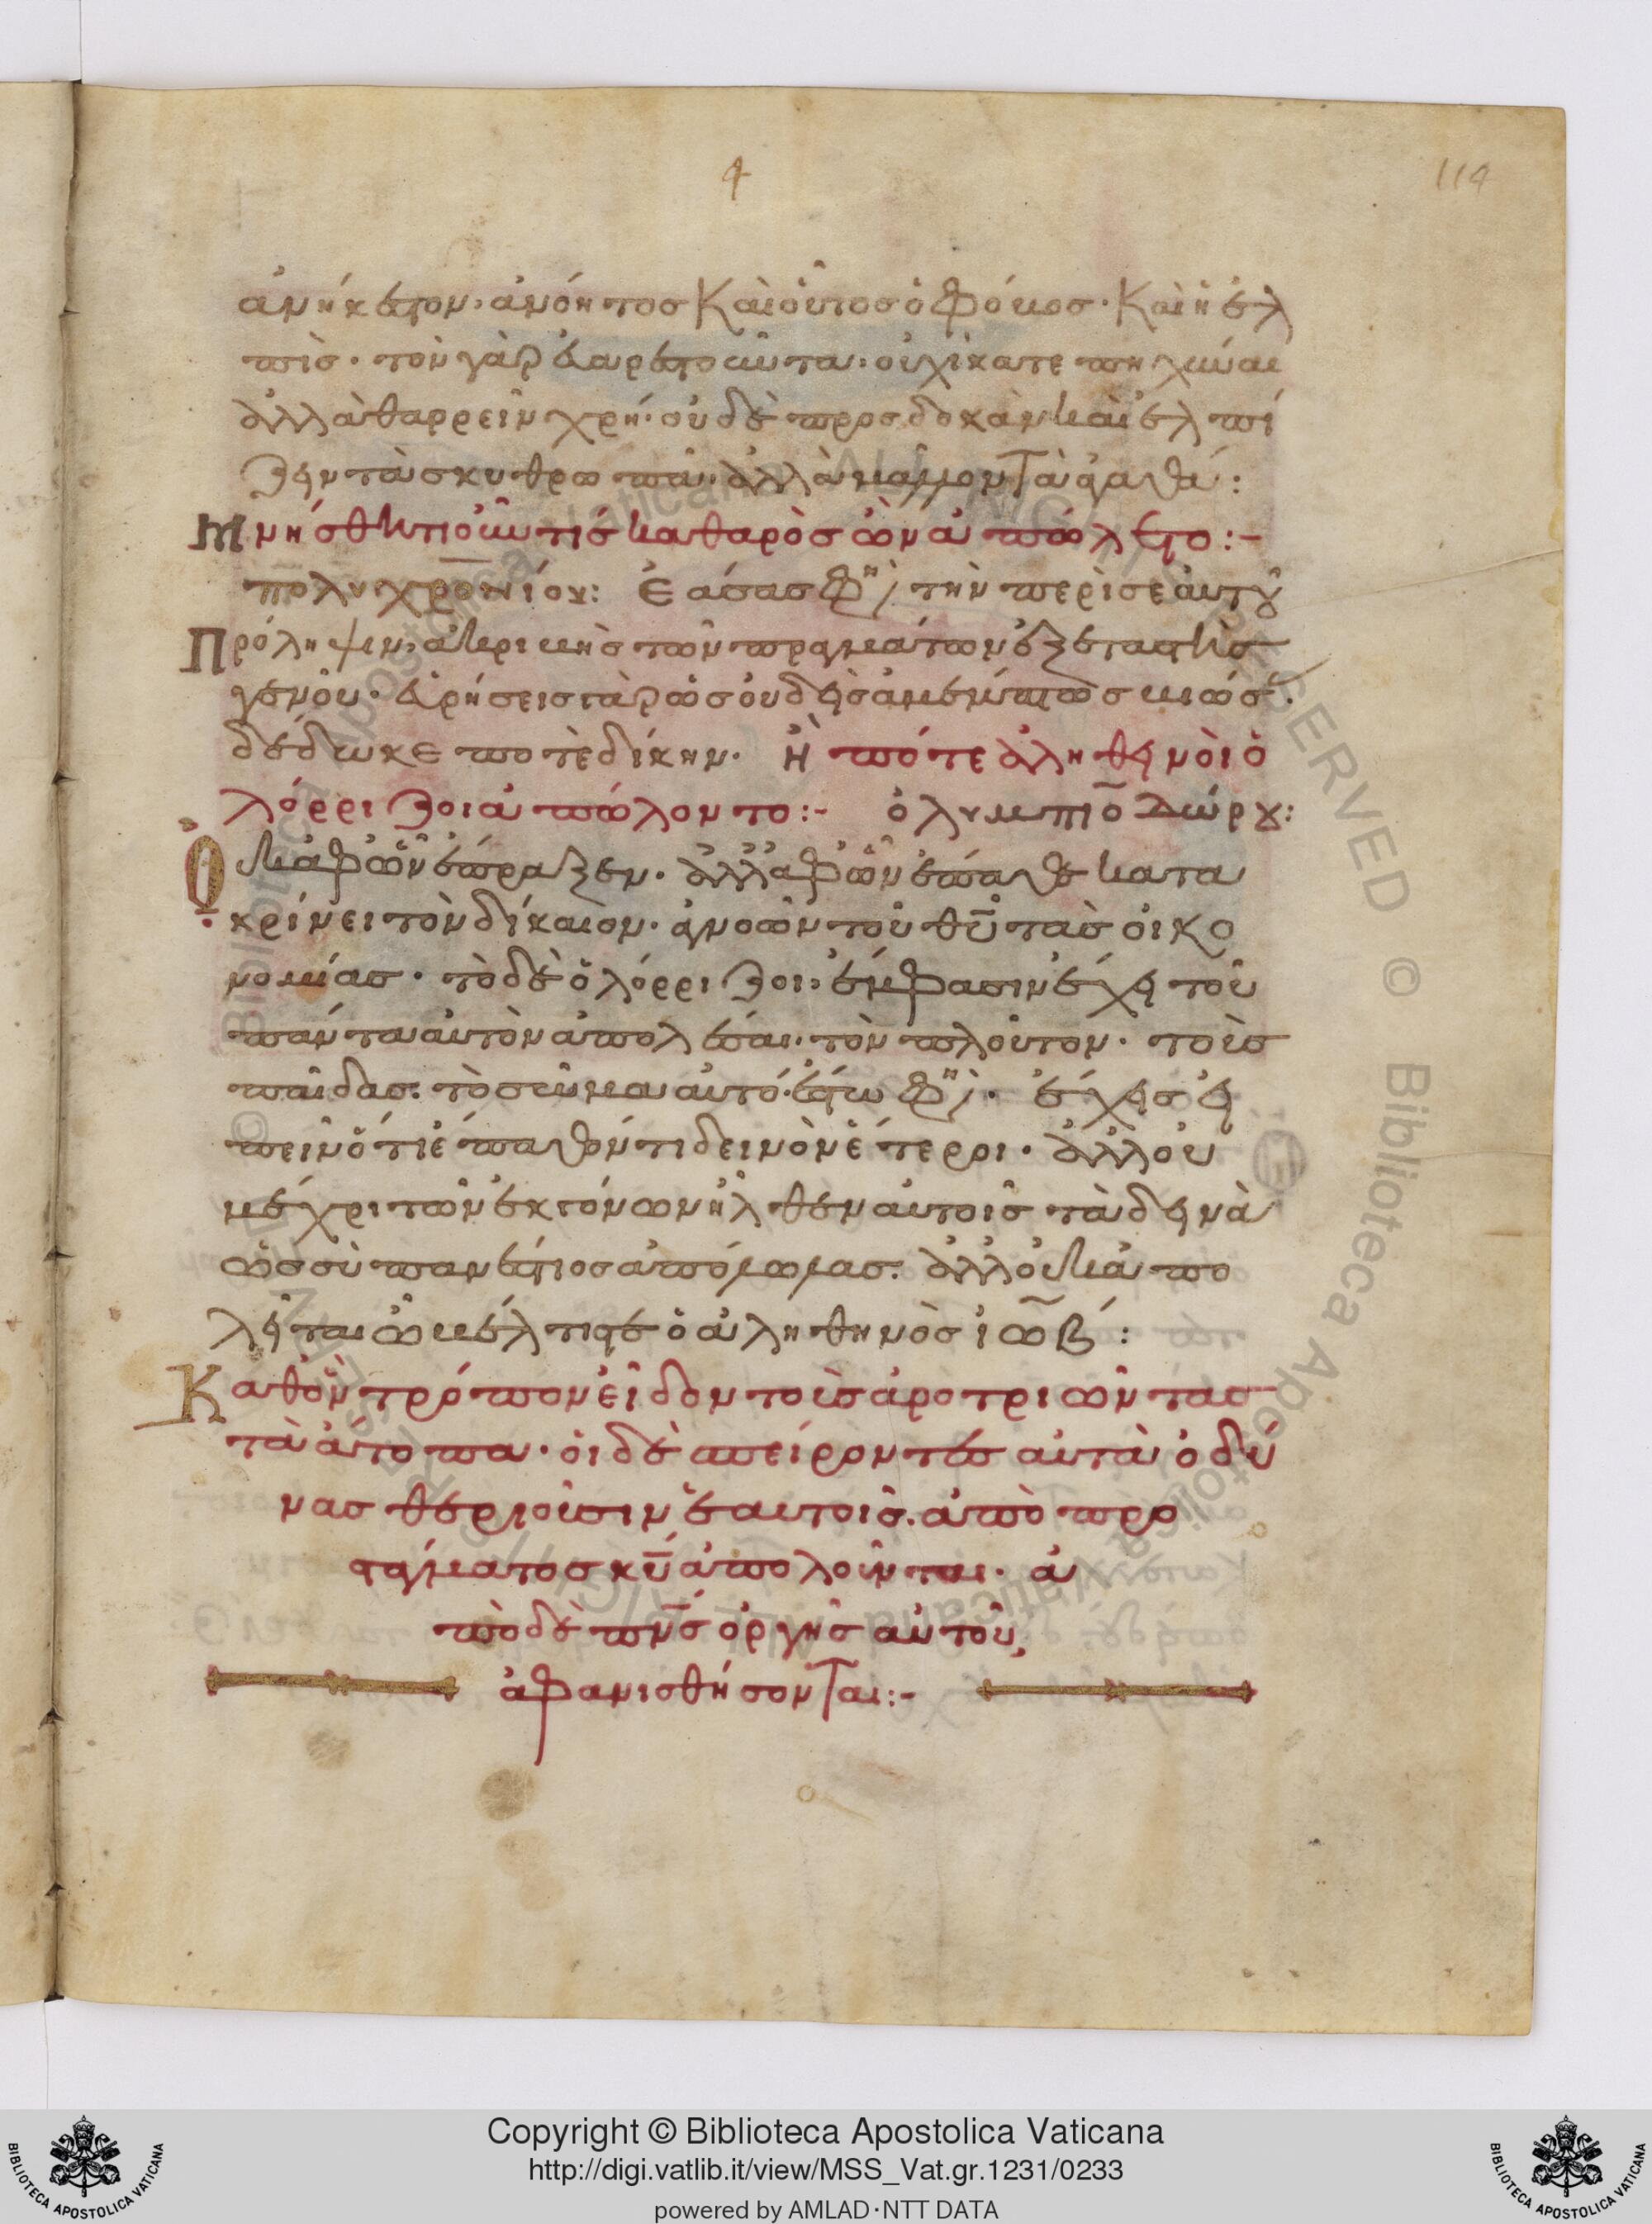 4
114
ἀνήκεστον· ἀνόητος καὶ οὗτος ὁ φόβος· καὶ ἡ ἐλ
πὶς· τὸν γὰρ εὐαρεστοῦντα· οὐχὶ κατεπτηχέναι
ἀλλὰ θαρρεῖν χρή· οὐδὲ προσδοκᾶν καὶ ἐλπί
ζειν τὰ σκυθρωπά· ἀλλὰ μᾶλλον τὰ ἀγαθά:
μνήσθητι οὖν τίς καθαρὸς ὢν ἀπώλετο:-
πολυχρονίου: Ἐάσας φη(σὶ) τὴν περὶ σεαυτοῦ
Πρόληψιν· ἀκριβὴς τῶν πραγμάτων ἐξεταστὴς
γενοῦ· εὑρήσεις γὰρ ὡς οὐδεὶς ἀμέμπτως βιώσ
δέδωκε ποτὲ δίκην· Ἢ πότε ἀληθινοὶ ὁ
λόρριζοι ἀπώλοντο:- ὀλυμπιοδώρου:
Οὐκ ἀφ' ὧν ἔπραξεν· ἀλλ' ἀφ' ὧν ἔπαθε κατα
κρίνει τὸν δίκαιον· ἀγνοῶν τοῦ θυ τὰς οἰκο
νομίας· τὸ δὲ ὁλόρριζοι· ἔμφασιν ἔχει τοῦ
πάντα αὐτὸν ἀπολέσαι· τὸν πλοῦτον· τοὺς
παῖδας· τὸ σῶμα αὐτό· ἔστω φησί· ἔχεις εἰ
πεῖν ὅτι ἔπαθόν τι δεινὸν ἕτεροι· ἀλλ' οὐ
μέχρι τῶν ἐκγόνων ἦλθεν αὐτοῖς τὰ δεινὰ
ὡς σὺ πανέστιος ἀπόλωλας· ἀλλ' οὐκ ἀπο
λεῖται ὦ βέλτιστε ὁ ἀληθινὸς ἰώβ:
Καθ' ὃν τρόπον εἶδον τοὺς ἀροτριῶντας
τὰ ἄτοπα· οἱ δὲ σπείροντες αὐτὰ ὀδύ
νας θεριοῦσιν ἑαυτοῖς· ἀπὸ προ
στάγματος κυ ἀπολοῦνται· ἀ
πὸ δὲ πνς ὀργῆς αὐτοῦ
ἀφανισθήσονται:-
Copyright © Biblioteca Apostolica Vaticana
http://digi.vatlib.it/view/MSS_Vat.gr.1231/0233
powered by AMLAD·NTT DATA
BIBLIOTECA APOSTOLICA VATICANA
BIBLIOTECA APOSTOLICA VATICANA